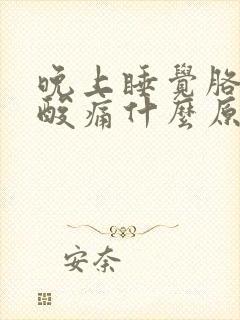 晚上睡覺胳
酸痛什麼原
安奈